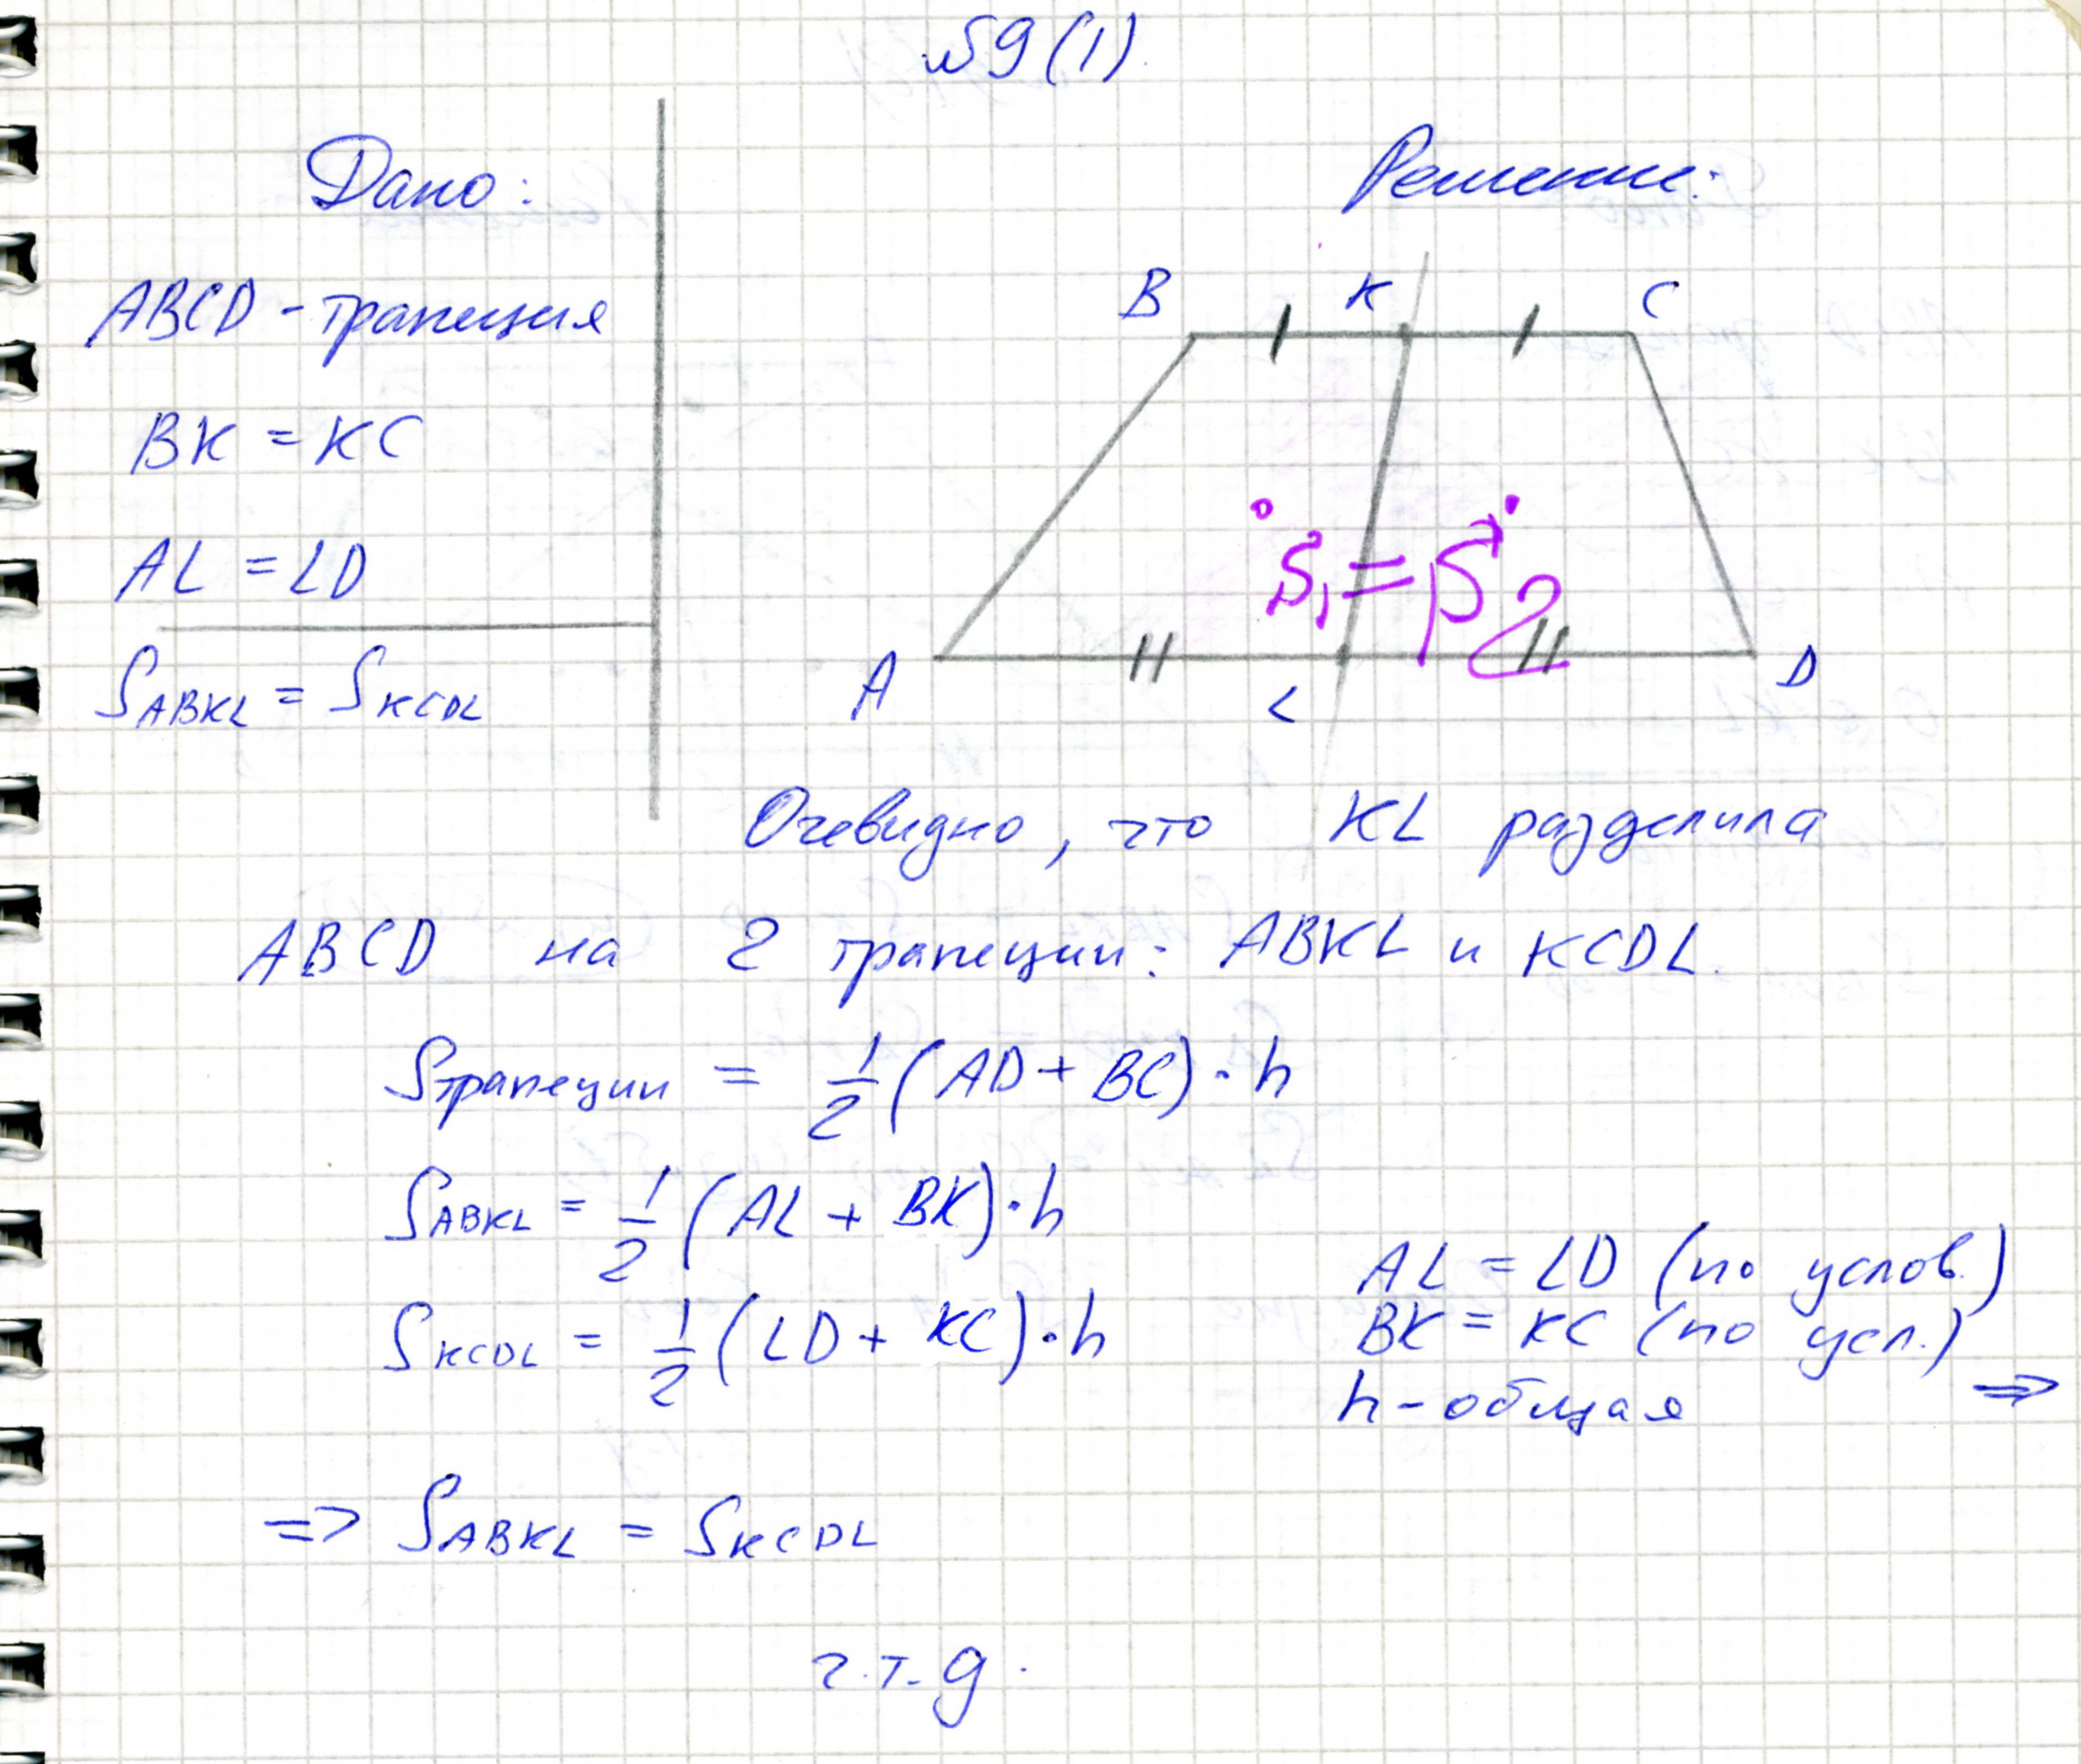 №9(1)
Дано:
ABCD - трапеция
BK = KC
AL = LD
S ABKL = S KCDL
Решение:
B K C
S₁ = S₂
A L D
Очевидно, что KL разделила
ABCD на 2 трапеции: ABKL и KCDL.
S трапеции = 1/2 (AD + BC) · h
S ABKL = 1/2 (AL + BK) · h
S KCDL = 1/2 (LD + KC) · h
AL = LD (по услов.)
BK = KC (по усл.)
h - общая =>
=> S ABKL = S KCDL
ч.т.д.